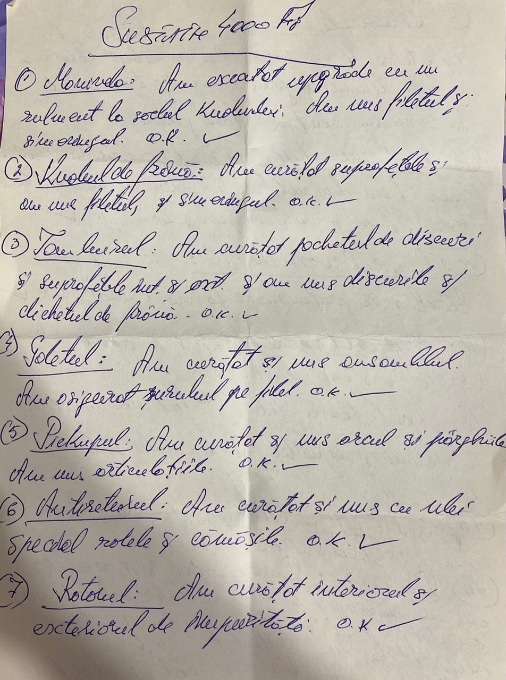 Sustain 4000 FG
① Manivela: Am executat upgrade cu un
rulment la soclul Knobului. Am uns filetul și
simeringul. O.K. ✓
② Knobul de frână: Am curățat suprafețele și
am uns filetul, și simeringul. O.K. ✓
③ Tamburul: Am curățat pachetul de discuri
și suprafețele int. și ext. și am uns discurile și
clichetul de frână. O.K. ✓
④ Galetul: Am curățat și uns ansamblul.
Am asigurat șurubul pe filet. O.K. ✓
⑤ Pickupul: Am curățat și uns arcul și pârghiile
Am uns articulațiile. O.K. ✓
⑥ Antireturul: Am curățat și uns cu ulei
special rolele și cămășile. O.K. ✓
⑦ Rotorul: Am curățat interiorul și
exteriorul de impurități. O.K ✓